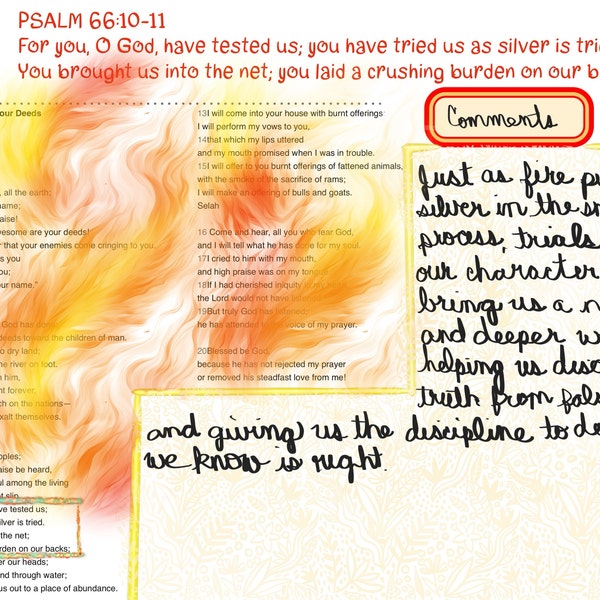 PSALM 66:10-11
For you, O God, have tested us; you have tried us as silver is
You brought us into the net; you laid a crushing burden on our
our Deeds
, all the earth;
name;
aise!
esome are your deeds!
r that your enemies come cringing to you.
s you
you;
our name."
God has
deeds toward the children of man.
o dry land;
e river on foot.
him,
t forever,
ch on the nations—
exalt themselves.
oples;
aise be heard,
ul among the living
t slip.
ve tested us;
silver is tried.
the net;
rden on our backs;
er our heads;
nd through water;
us out to a place of abundance.
13I will come into your house with burnt offerings
I will perform my vows to you,
14that which my lips uttered
and my mouth promised when I was in trouble.
15I will offer to you burnt offerings of fattened animals,
with the smoke of the sacrifice of rams;
I will make an offering of bulls and goats.
Selah
16 Come and hear, all you who fear God,
and I will tell what he has done for my soul.
17I cried to him with my mouth,
and high praise was on my tongue
18If I had cherished iniquity in my heart,
the Lord would not have listened.
19But truly God has listened;
he has attended to the voice of my prayer.
20Blessed be God,
because he has not rejected my prayer
or removed his steadfast love from me!
Comments
Just as fire
silver in the
process, trials
our character
bring us a
and deeper
helping us
truth from
and giving us the discipline to
we know is right.